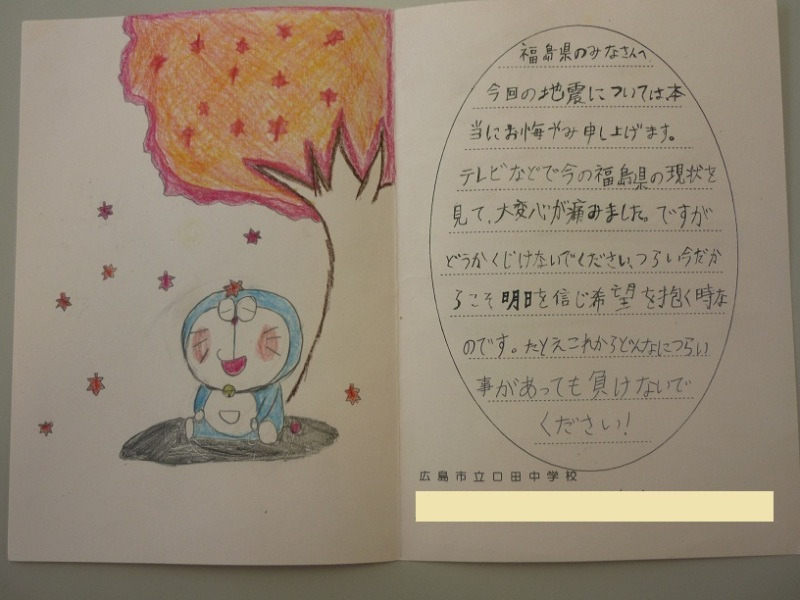 福島県のみなさんへ
今回の地震については本
当にお悔やみ申し上げます。
テレビなどで今の福島県の現状を
見て、大変心が痛みました。ですが
どうかくじけないでください、つらい今だか
らこそ明日を信じ希望を抱く時な
のです。たとえこれからどんなにつらい
事があっても負けないで
ください!
広島市立口田中学校